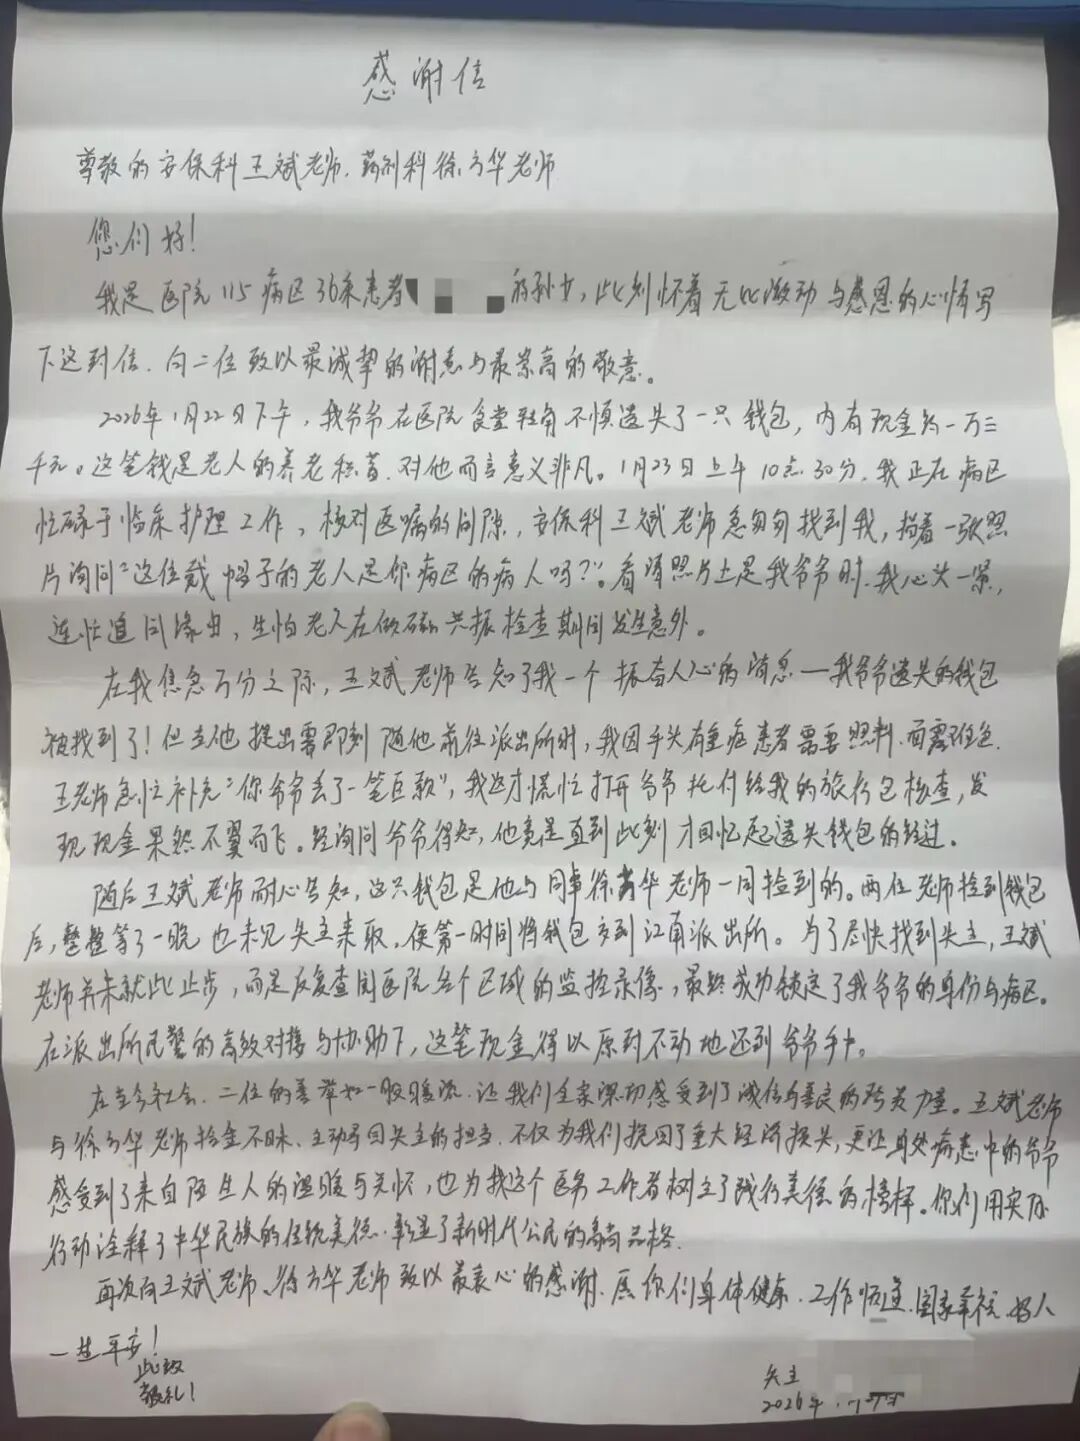 感谢信
尊敬的安保科王斌老师、药剂科徐方华老师
您们好!
我是医院115病区36床患者 的孙女,此刻怀着无比激动与感恩的心情写
下这封信、向二位致以最诚挚的谢意与最崇高的敬意。
2026年1月22日下午,我爷爷在医院食堂转角不慎遗失了一只钱包,内有现金约一万三
千元。这笔钱是老人的养老积蓄、对他而言意义非凡。1月23日上午10点30分,我正在病区
忙碌于临床护理工作、核对医嘱的间隙,安保科王斌老师急匆匆找到我,指着一张照
片询问“这位戴帽子的老人是你病区的病人吗?”。看清照片上是我爷爷时、我心头一紧,
连忙追问缘由,生怕老人在做磁共振检查期间发生意外。
在我焦急万分之际,王斌老师告知了我一个振奋人心的消息—我爷爷遗失的钱包
被找到了!但当他提出需即刻随他前往派出所时,我因手头有重症患者需要照料、而露难色.
王老师急忙补充“你爷爷丢了一笔巨款”,我这才慌忙打开爷爷托付给我的旅行包核查,发
现现金果然不翼而飞。经询问爷爷得知,他竟是直到此刻才回忆起遗失钱包的经过.
随后王斌老师耐心告知,这只钱包是他与同事徐方华老师一同捡到的。两位老师捡到钱包
后,整整等了一晚也未见失主来取、便第一时间将钱包交到江南派出所。为了尽快找到失主,王斌
老师并未就此止步,而是反复查阅医院各个区域的监控录像,最终成功锁定了我爷爷的身份与病区。
在派出所民警的高效对接与协助下,这笔现金得以原封不动地还到爷爷手中。
在当今社会、二位的善举如一股暖流、让我们全家深切感受到了诚信与善良的 力量。王斌老师
与徐方华老师拾金不昧、主动寻回失主的担当、不仅为我们挽回了重大经济损失,更让身处病患中的爷爷
感受到了来自陌生人的温暖与关怀,也为我这个医务工作者树立了践行美德的榜样。你们用实际
行动诠释了中华民族的传统美德、彰显了新时代公民的高尚品格.
再次向王斌老师、徐方华老师致以最衷心的感谢、愿你们身体健康、工作顺遂、阖家幸福、好人
一生平安!
此致
敬礼!
失主
2026年